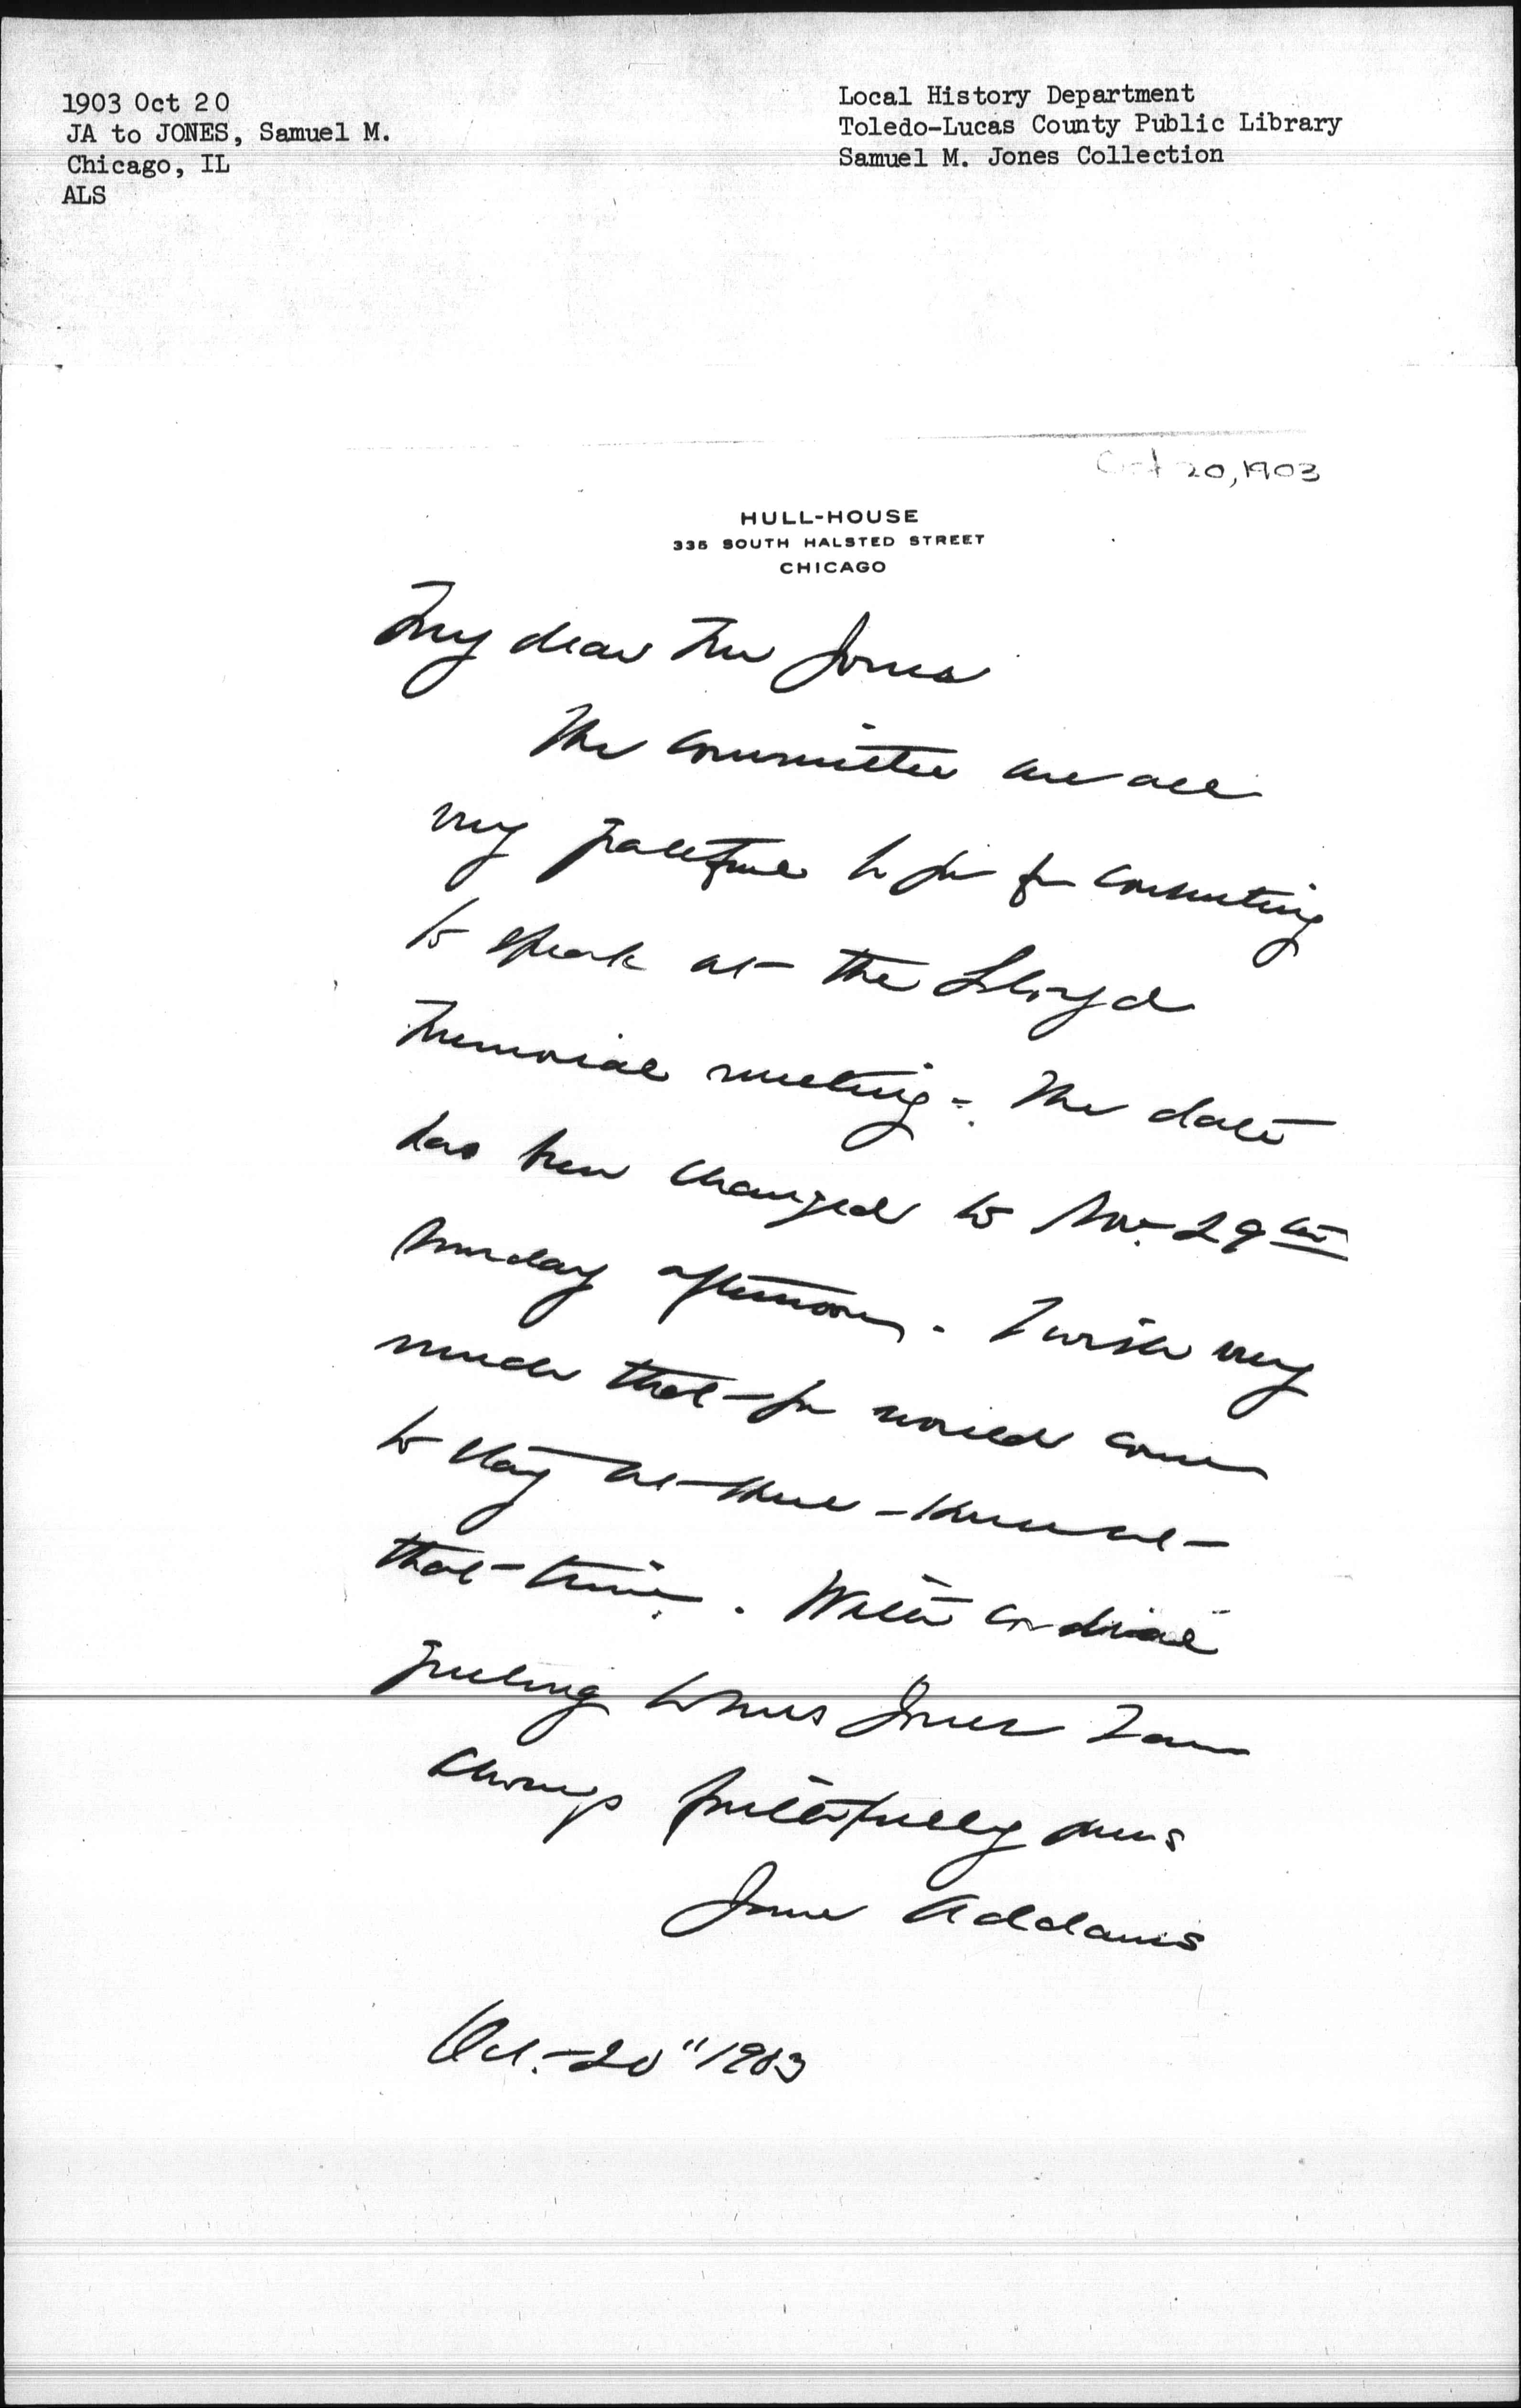 1903 Oct 20
JA to JONES, Samuel M.
Chicago, IL
ALS
Local History Department
Toledo-Lucas County Public Library
Samuel M. Jones Collection
Oct 20, 1903
HULL-HOUSE
335 SOUTH HALSTED STREET
CHICAGO
My dear Mr Jones
The committee are all
very grateful to you for consenting
to speak at the Lloyd
Memorial meeting. The date
has been changed to Nov. 29th
Sunday afternoon. I wish very
much that you would come
to stay at Hull-House at
that time. With cordial
greeting to Mrs Jones I am
always faithfully yours
Jane Addams
Oct. 20" 1903